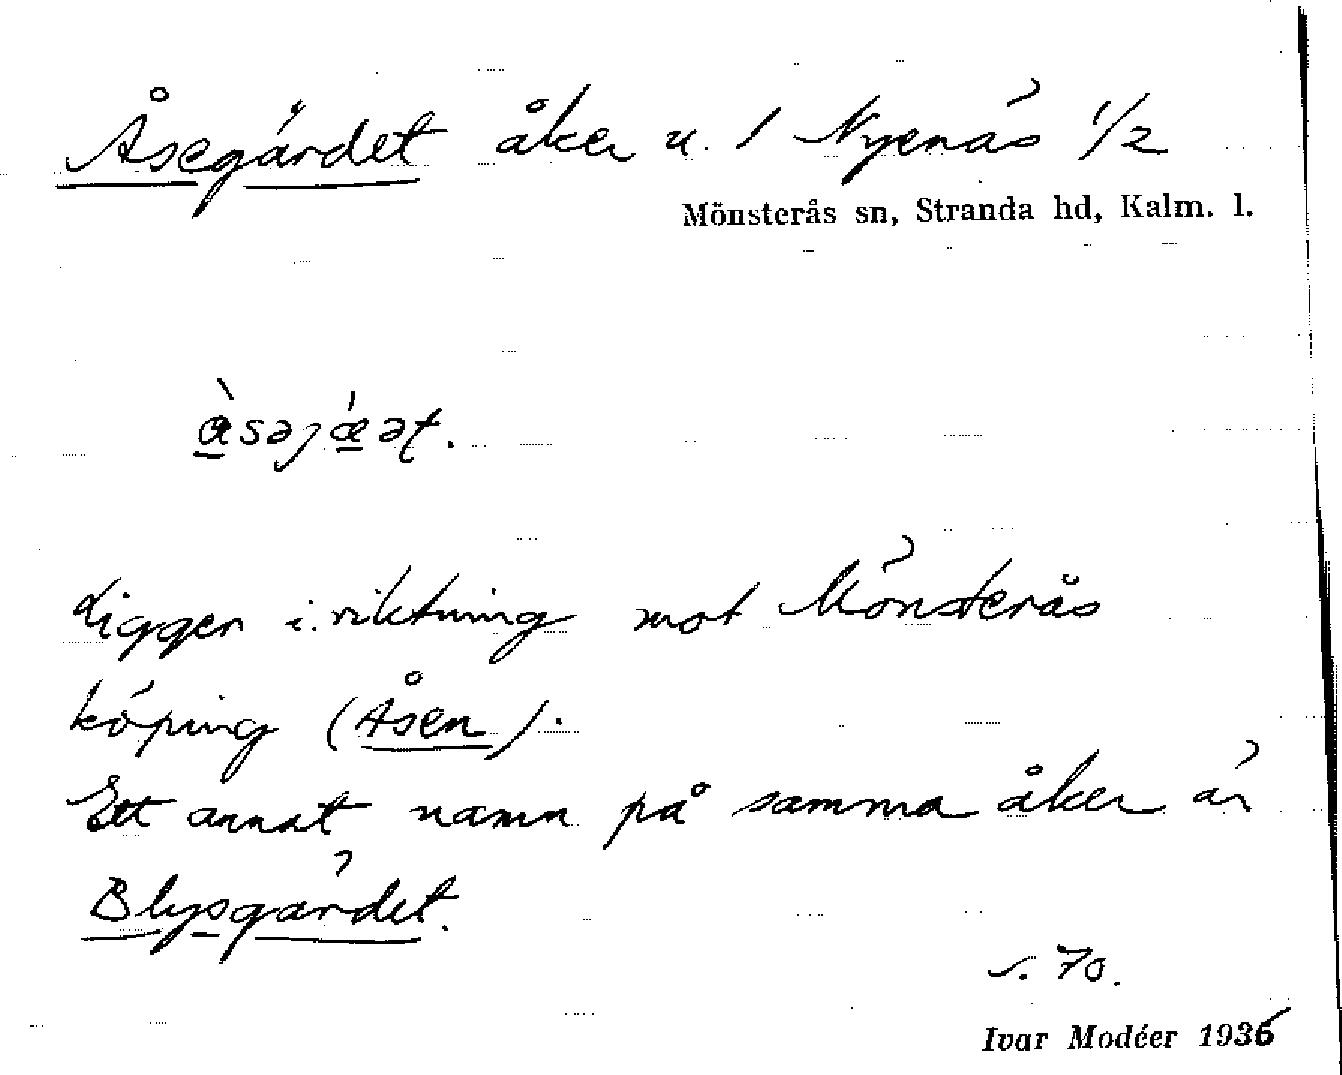 Åsegärdet åker u. 1 Nyenäs 1/2
Mönsterås sn, Stranda hd, Kalm. l.
Ligger i riktning mot Mönsterås
köping (Åsen).
Ett annat namn på samma åker är
Blysgärdet.
s. 70.
Ivar Modéer 1936